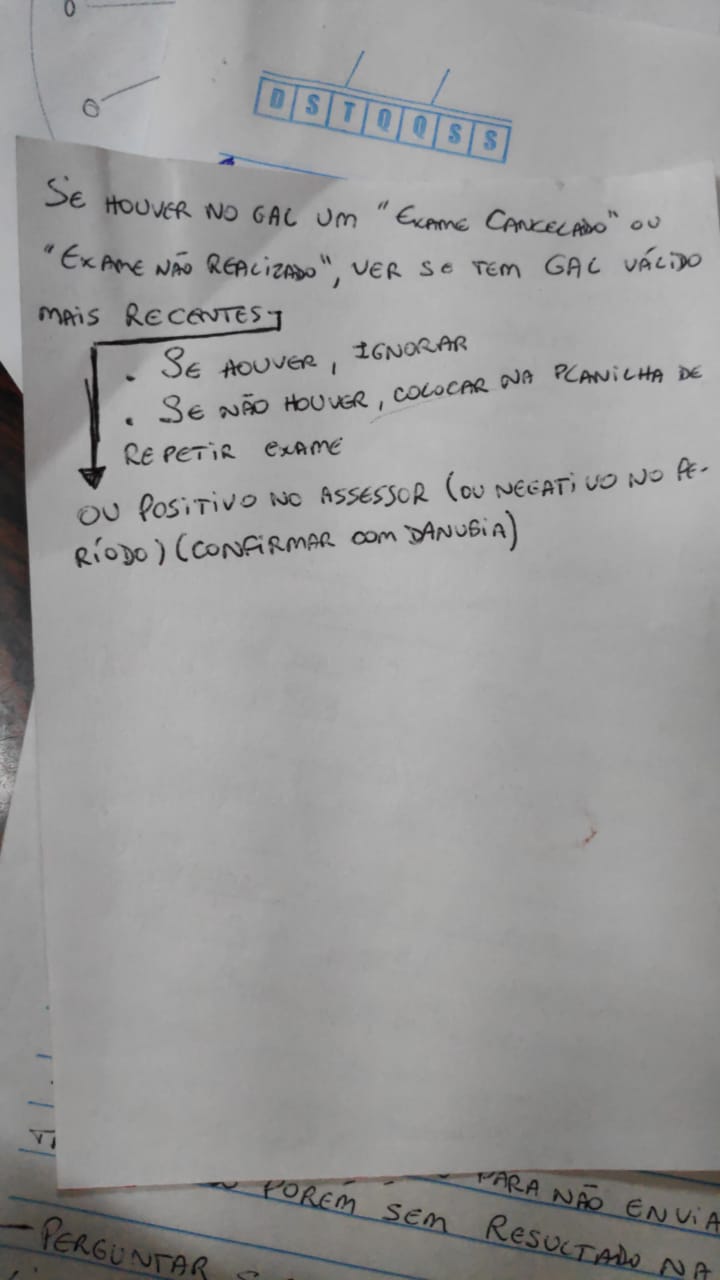 D S T Q Q S S
SE HOUVER NO GAL UM "EXAME CANCELADO" OU
"EXAME NÃO REALIZADO", VER SE TEM GAL VÁLIDO
MAIS RECENTES
. SE HOUVER, IGNORAR
. SE NÃO HOUVER, COLOCAR NA PLANILHA DE
REPETIR EXAME
OU POSITIVO NO ASSESSOR (OU NEGATIVO NO PE-
RÍODO) (CONFIRMAR COM DANUBIA)
PARA NÃO ENVIA
PORÉM SEM RESULTADO NA
— PERGUNTAR